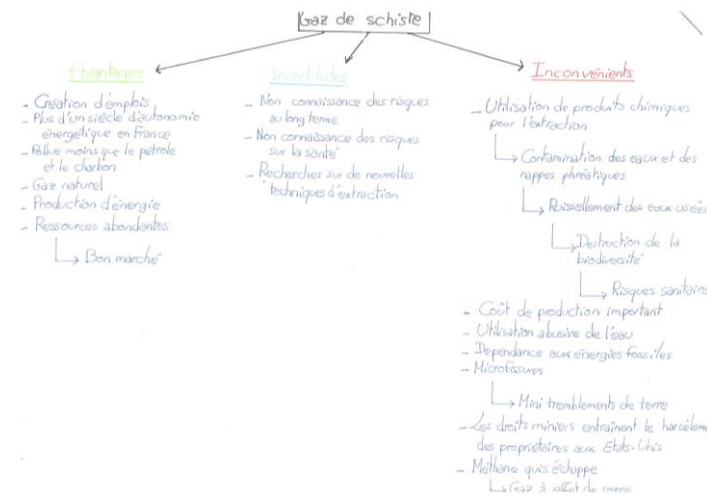 Gaz de schiste
Avantages
- Création d'emplois
- Plus d'un siècle d'autonomie
énergétique en France
- Pollue moins que le pétrole
et le charbon
- Gaz naturel
- Production d'énergie
- Ressources abondantes
Bon marché
Incertitudes
- Non connaissance des risques
au long terme
- Non connaissance des risques
sur la santé
- Recherches sur de nouvelles
techniques d'extraction
Inconvénients
- Utilisation de produits chimiques
pour l'extraction
Contamination des eaux et des
nappes phréatiques
Ruissellement des eaux usées
Destruction de la
biodiversité
Risques sanitaires
- Coût de production important
- Utilisation abusive de l'eau
- Dépendance aux énergies fossiles
- Microfissures
Mini tremblements de terre
- Les droits miniers entraînent le harcèleme
des propriétaires aux Etats-Unis
- Méthane qui s'échappe
Gaz à effet de serre